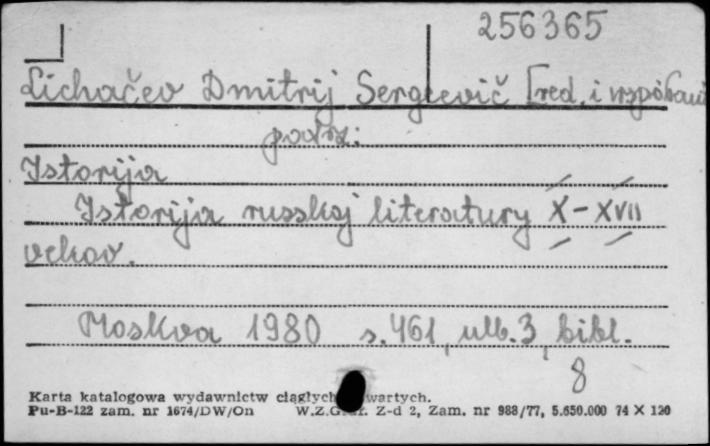 256365
Lichačev Dmitrij Sergeevič [red. i współaut
podtz:
Istorija
Istorija russkoj literatury X-XVII
vekov.
Moskva 1980 s. 461, ulb. 3, bibl.
8
Karta katalogowa wydawnictw ciągłych wartych.
Pu-B-122 zam. nr 1674/DW/On W.Z.Graf. Z-d 2, Zam. nr 988/77, 5.650.000 74 X 120